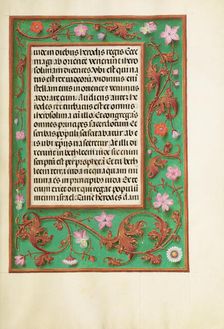 in diebus herodis regis Ecce
magi ab oriente venerunt ihero
solimam dicentes Ubi est qui na
tus est rex
stellam eius in oriente et venimus
adorare eum Audiens autem
herodes rex turbatus est et omnis
iherosolima cum illo Et congregans
omnes principes sacerdotum et
scribas populi
eis ubi christus nasceretur At illi
dixerunt In bethleem iude Sic
est per prophetam Et tu
bethleem terra iuda nequaquam
minima es in principibus iuda Ex
te enim exiet dux qui regat populum
meum israel Tunc herodes clam